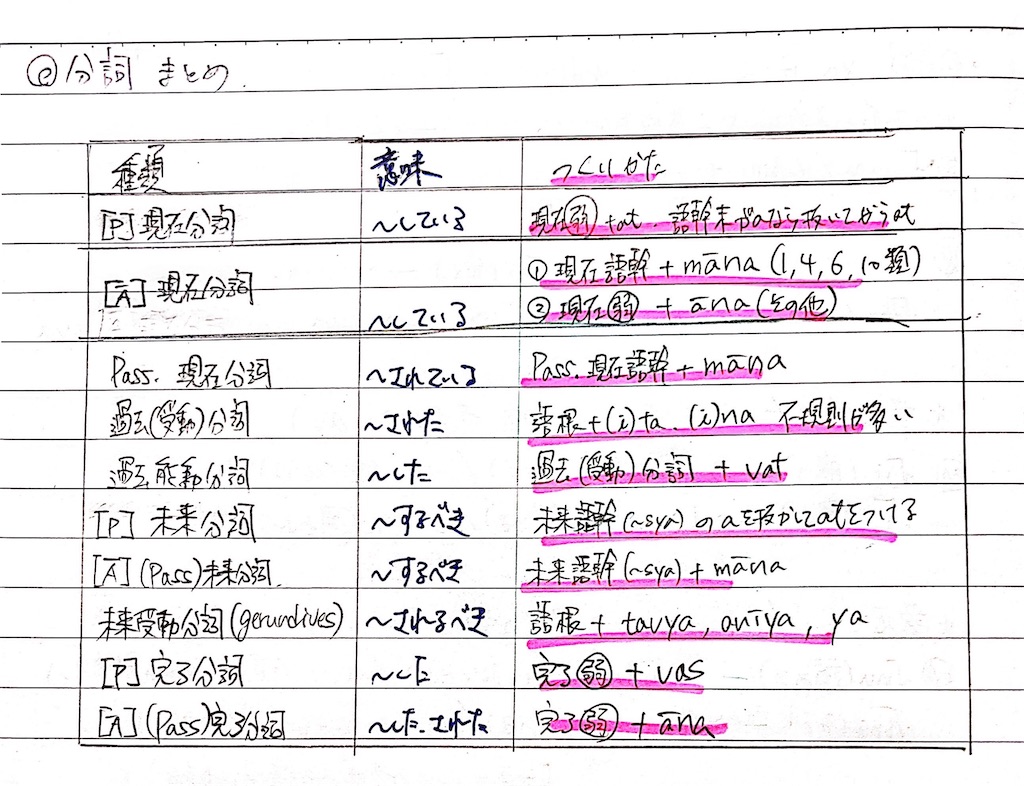 ◎分詞 まとめ.
種類 意味 つくりかた
[P]現在分詞 〜している 現在弱+at. 語幹末がaなら抜いてからat
[Ā]現在分詞 〜している ①現在語幹+māna(1,4,6,10類)
②現在弱+āna(その他)
Pass.現在分詞 〜されている Pass.現在語幹+māna
過去(受動)分詞 〜された 語根+(i)ta.(i)na 不規則が多い
過去能動分詞 〜した 過去(受動)分詞+vat
[P]未来分詞 〜するべき 未来語幹(~sya)のaを抜かしてatをつける
[A](Pass)未来分詞. 〜するべき 未来語幹(~sya)+māna
未来受動分詞(gerundives) 〜されるべき 語根+tavya, anīya, ya
[P]完了分詞 〜した 完了弱+vas
[A](Pass)完了分詞 〜した.された 完了弱+āna